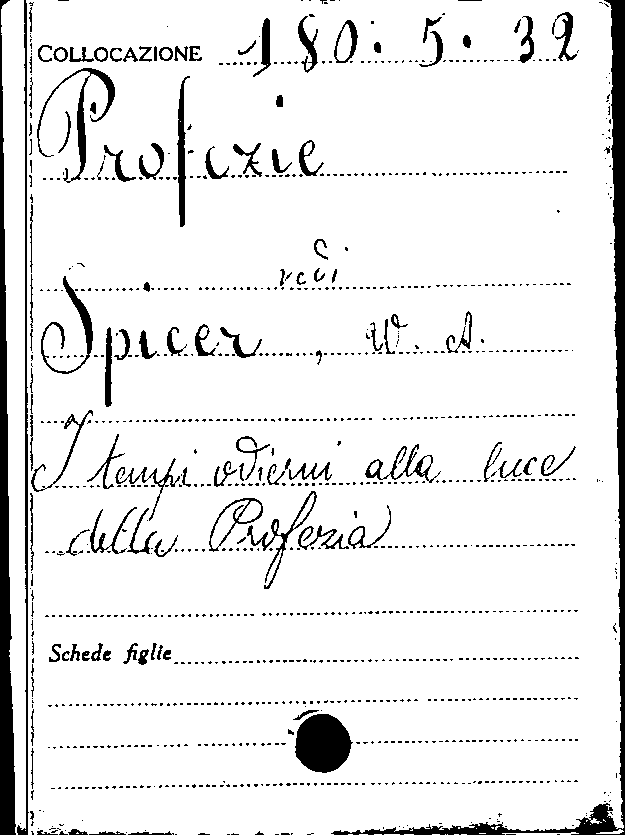 COLLOCAZIONE 180. 5. 32
Profezie
vedi
Spicer, W. A.
I tempi odierni alla luce
della Profezia
Schede figlie